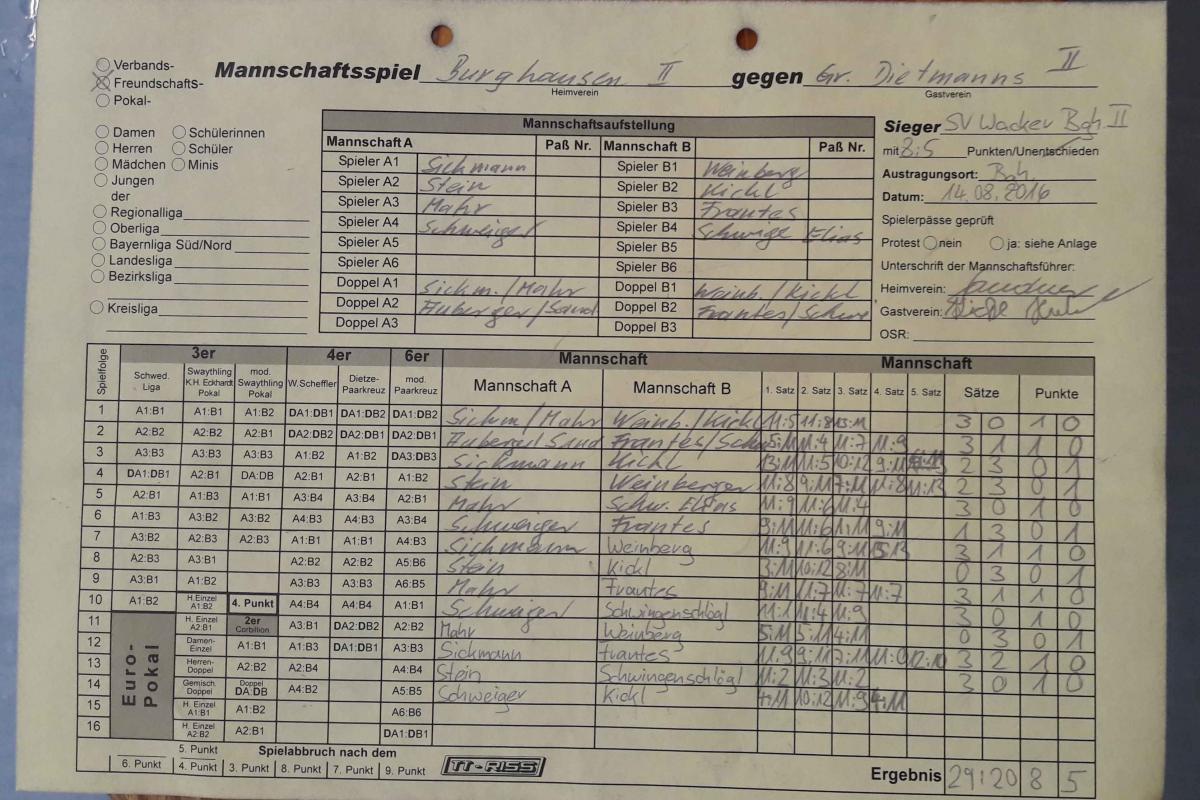 Verbands-
Freundschafts-
Pokal-
Mannschaftsspiel Burghausen II gegen Gr. Dietmanns II
Heimverein Gastverein
Damen Schülerinnen
Herren Schüler
Mädchen Minis
Jungen
der
Regionalliga
Oberliga
Bayernliga Süd/Nord
Landesliga
Bezirksliga
Kreisliga
Mannschaftsaufstellung
Mannschaft A Paß Nr. Mannschaft B Paß Nr.
Spieler A1 Sickmann Spieler B1 Weinberg
Spieler A2 Stein Spieler B2 Kickl
Spieler A3 Mahr Spieler B3 Frantes
Spieler A4 Schweiger Spieler B4 Schwinge Elias
Spieler A5 Spieler B5
Spieler A6 Spieler B6
Doppel A1 Sickm. / Mahr Doppel B1 Weinb. / Kickl
Doppel A2 Auberger / Sand Doppel B2 Frantes / Schw
Doppel A3 Doppel B3
Sieger SV Wacker Bgh. II
mit 8:5 Punkten/Unentschieden
Austragungsort: Bgh.
Datum: 14.08.2016
Spielerpässe geprüft
Protest nein ja: siehe Anlage
Unterschrift der Mannschaftsführer:
Heimverein:
Gastverein:
OSR:
Spielfolge 3er 4er 6er Mannschaft Mannschaft
Schwed. Liga Swaythling K.H. Eckhardt Pokal mod. Swaythling Pokal W.Scheffler Dietze-Paarkreuz mod. Paarkreuz Mannschaft A Mannschaft B 1. Satz 2. Satz 3. Satz 4. Satz 5. Satz Sätze Punkte
1 A1:B1 A1:B1 A1:B2 DA1:DB1 DA1:DB2 DA1:DB2 Sickm / Mahr Weinb. / Kickl 11:5 11:8 13:11 3 0 1 0
2 A2:B2 A2:B2 A2:B1 DA2:DB2 DA2:DB1 DA2:DB1 Auberger / Sand Frantes / Schw 5:11 11:4 11:7 11:9 3 1 1 0
3 A3:B3 A3:B3 A3:B3 A1:B2 A1:B2 DA3:DB3 Sickmann Kickl 13:11 11:5 10:12 9:11 2 3 0 1
4 DA1:DB1 A2:B1 DA:DB A2:B1 A2:B1 A1:B2 Stein Weinberger 11:8 9:11 7:11 11:8 11:13 2 3 0 1
5 A2:B1 A1:B3 A1:B1 A3:B4 A3:B4 A2:B1 Mahr Schw. Elias 11:9 11:6 11:4 3 0 1 0
6 A1:B3 A3:B2 A3:B2 A4:B3 A4:B3 A3:B4 Schweiger Frantes 9:11 11:6 1:11 9:11 1 3 0 1
7 A3:B2 A2:B3 A2:B3 A1:B1 A1:B1 A4:B3 Sickmann Weinberg 11:9 11:6 9:11 15:13 3 1 1 0
8 A2:B3 A3:B1 A2:B2 A2:B2 A5:B6 Stein Kickl 3:11 10:12 8:11 0 3 0 1
9 A3:B1 A1:B2 A3:B3 A3:B3 A6:B5 Mahr Frantes 9:11 11:7 11:7 11:7 3 1 1 0
10 A1:B2 H.Einzel A1:B2 4. Punkt A4:B4 A4:B4 A1:B1 Schweiger Schwingenschlögl 11:1 11:4 11:9 3 0 1 0
11 Euro-Pokal H. Einzel A2:B1 2er Corbillion A3:B1 DA2:DB2 A2:B2 Mahr Weinberg 5:11 5:11 4:11 0 3 0 1
12 Damen-Einzel A1:B1 A1:B3 DA1:DB1 A3:B3 Sickmann Frantes 11:9 9:11 7:11 11:0 12:10 3 2 1 0
13 Herren-Doppel A2:B2 A2:B4 A4:B4 Stein Schwingenschlögl 11:2 11:3 11:2 3 0 1 0
14 Gemisch. Doppel Doppel DA:DB A4:B2 A5:B5 Schweiger Kickl 4:11 10:12 11:9 4:11
15 H. Einzel A1:B1 A1:B2 A6:B6
16 H. Einzel A2:B2 A2:B1 DA1:DB1
5. Punkt Spielabbruch nach dem
6. Punkt 4. Punkt 3. Punkt 8. Punkt 7. Punkt 9. Punkt TT-RISS Ergebnis 29:20 8 5